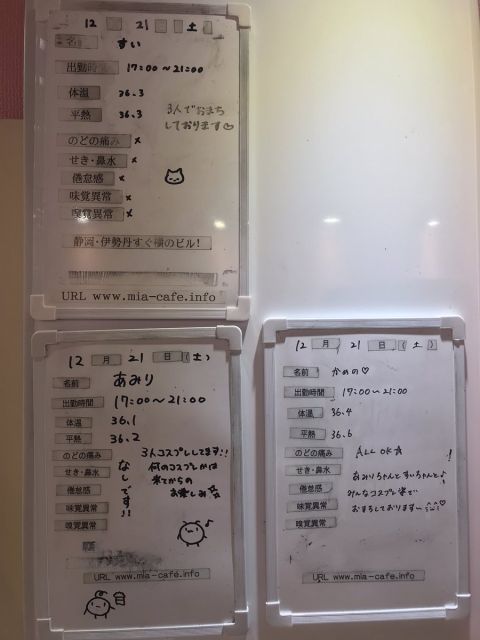 12 21 土
すい
出勤時 17:00~21:00
体温 36.3
平熱 36.3
3人でおまち
しております♡
のどの痛み ×
せき・鼻水 ×
倦怠感 ×
味覚異常 ×
嗅覚異常 ×
静岡・伊勢丹すぐ横のビル!
URL www.mia-cafe.info
12 月 21 日 (土)
名前 あみり
出勤時間 17:00~21:00
体温 36.1
平熱 36.2
のどの痛み
せき・鼻水
倦怠感
味覚異常
嗅覚異常
なしです!!
3人コスプレしてます!!
何のコスプレかは
来てからの
お楽しみ
URL www.mia-cafe.info
12 月 21 日 (土)
名前 かめの♡
出勤時間 17:00~21:00
体温 36.4
平熱 36.6
のどの痛み
せき・鼻水
倦怠感
味覚異常
嗅覚異常
ALL OK
!
あみりちゃんとすいちゃんと♪
みんなコスプレ
おまちしております
URL www.mia-cafe.info